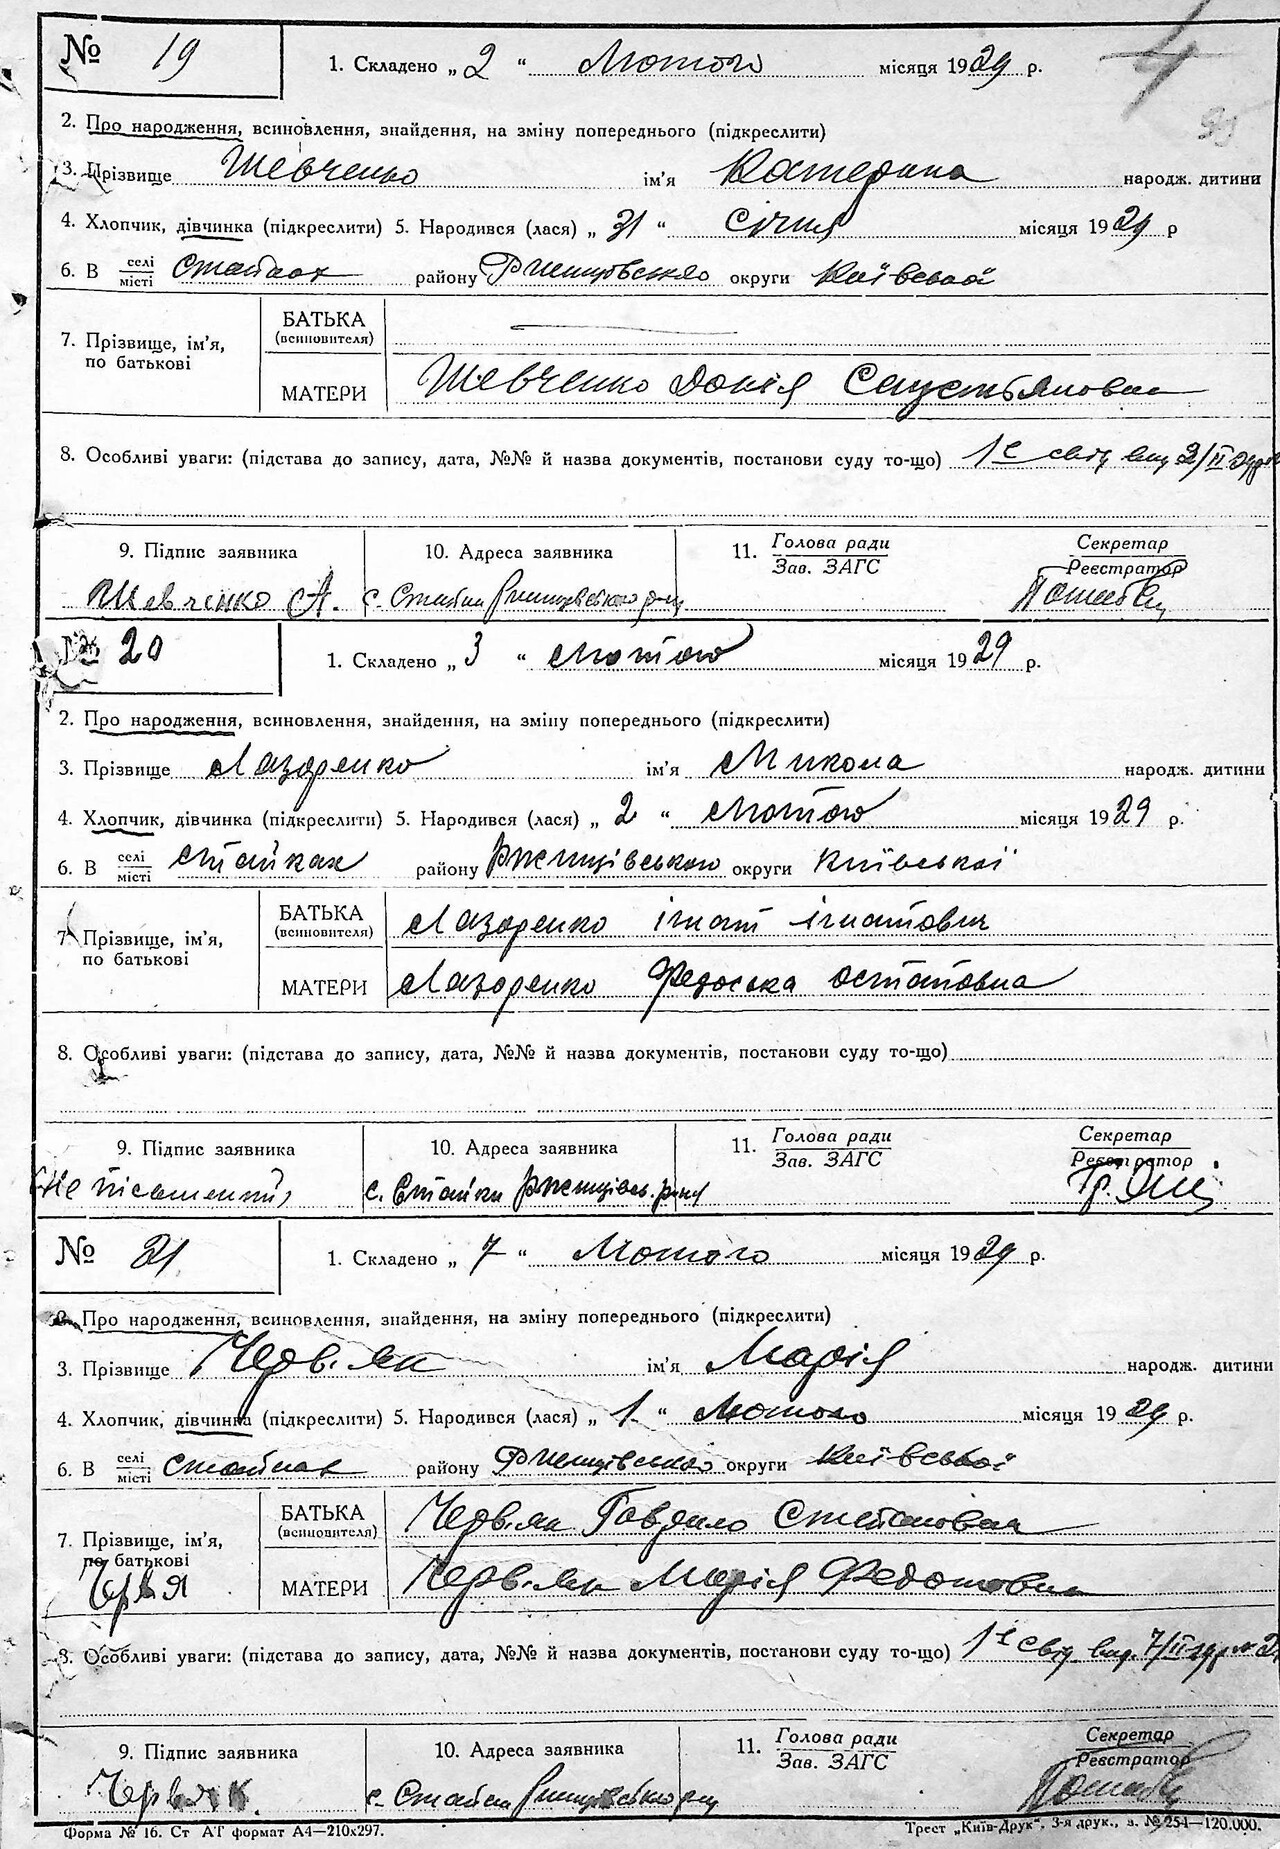 № 19
1. Складено „ 2 “ Лютого місяця 1929 р.
2. Про народження, всиновлення, знайдення, на зміну попереднього (підкреслити)
3. Прізвище Шевченко ім'я Катерина народж. дитини
4. Хлопчик, дівчинка (підкреслити) 5. Народився (лася) „ 31 “ Січня місяця 1929 р
6. В селі/місті Стайках району Ржищівського округи Київської
7. Прізвище, ім'я, по батькові
БАТЬКА (всиновителя)
МАТЕРИ Шевченко
8. Особливі уваги: (підстава до запису, дата, №№ й назва документів, постанови суду то-що)
9. Підпис заявника 10. Адреса заявника 11. Голова ради / Зав. ЗАГС Секретар / Реєстратор
Шевченко А. с. Стайки
№ 20
1. Складено „ 3 “ Лютого місяця 1929 р.
2. Про народження, всиновлення, знайдення, на зміну попереднього (підкреслити)
3. Прізвище Лазоренко ім'я Микола народж. дитини
4. Хлопчик, дівчинка (підкреслити) 5. Народився (лася) „ 2 “ Лютого місяця 1929 р.
6. В селі/місті Стайках району Ржищівського округи Київської
7. Прізвище, ім'я, по батькові
БАТЬКА (всиновителя) Лазоренко Ігнат Ігнатович
МАТЕРИ Лазоренко Федоська Остаповна
8. Особливі уваги: (підстава до запису, дата, №№ й назва документів, постанови суду то-що)
9. Підпис заявника 10. Адреса заявника 11. Голова ради / Зав. ЗАГС Секретар / Реєстратор
Не письменний с. Стайки Ржищівсь. р-ну
№ 21
1. Складено „ 7 “ Лютого місяця 1929 р.
2. Про народження, всиновлення, знайдення, на зміну попереднього (підкреслити)
3. Прізвище Черв'як ім'я Марія народж. дитини
4. Хлопчик, дівчинка (підкреслити) 5. Народився (лася) „ 1 “ Лютого місяця 1929 р.
6. В селі/місті Стайках району Ржищівського округи Київської
7. Прізвище, ім'я, по батькові
БАТЬКА (всиновителя) Черв'як Гаврило Степанович
МАТЕРИ Черв'як Марія Федотовна
8. Особливі уваги: (підстава до запису, дата, №№ й назва документів, постанови суду то-що)
9. Підпис заявника 10. Адреса заявника 11. Голова ради / Зав. ЗАГС Секретар / Реєстратор
Червяк. с. Стайки
Форма № 16. Ст АГ формат А4—210х297. Трест „Київ-Друк“, 3-я друк., з. № 254—120.000.